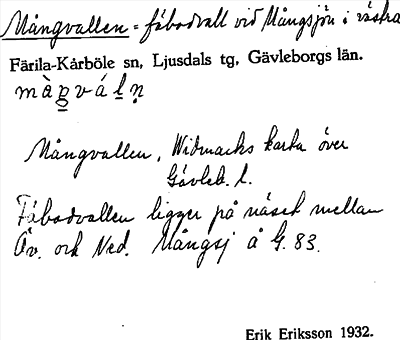 Mångvallen = fäbodvall vid Mångsjön i västra
Färila-Kårböle sn, Ljusdals tg, Gävleborgs län.
Mångvallen, Widmarks karta över
Gävleb. l.
Fäbodvallen ligger på näset mellan
Öv. och Ned. Mångsj å G. 83.
Erik Eriksson 1932.